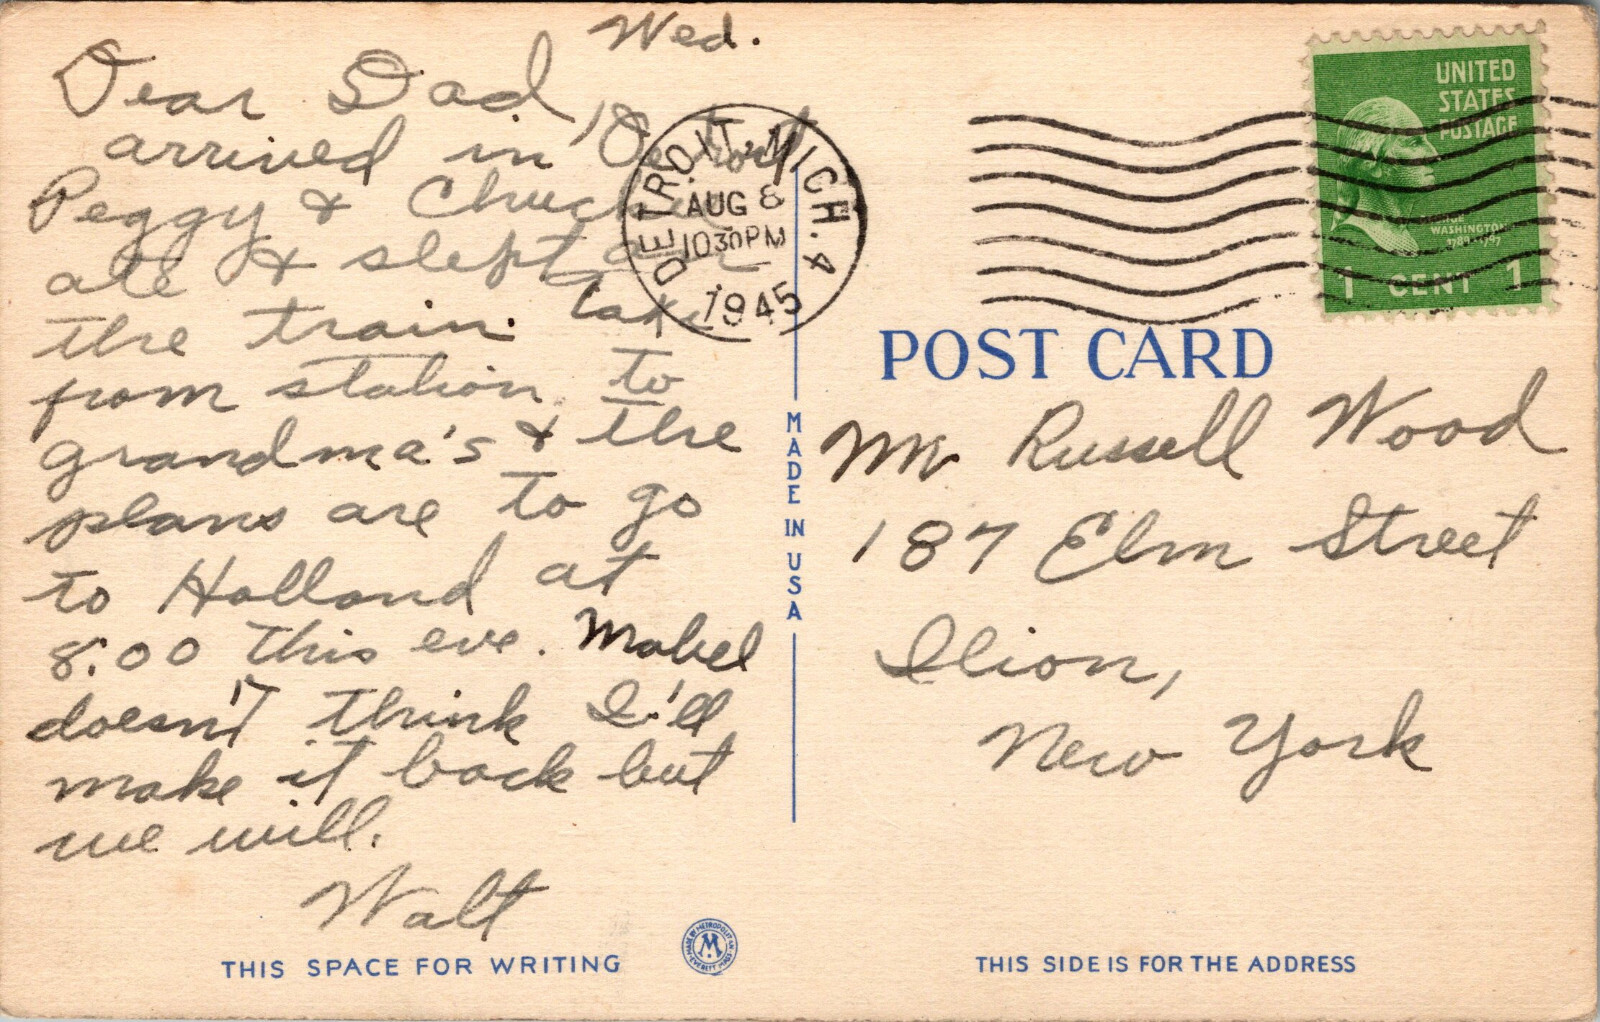 Wed.
Dear Dad,
arrived in Detroit
Peggy & Chucker
ate & slept on
the train. Taxi
from station to
grandma's & the
plans are to go
to Holland at
8:00 this eve. Mabel
doesn't think I'll
make it back but
we will.
Walt
THIS SPACE FOR WRITING
DETROIT, MICH. 4
AUG 8
1030PM
1945
MADE IN USA
MADE BY METROPOLITAN
M
EVERETT MASS
UNITED
STATES
POSTAGE
GEORGE
WASHINGTON
1789-1797
1 CENT 1
POST CARD
Mr Russell Wood
187 Elm Street
Ilion,
New York
THIS SIDE IS FOR THE ADDRESS